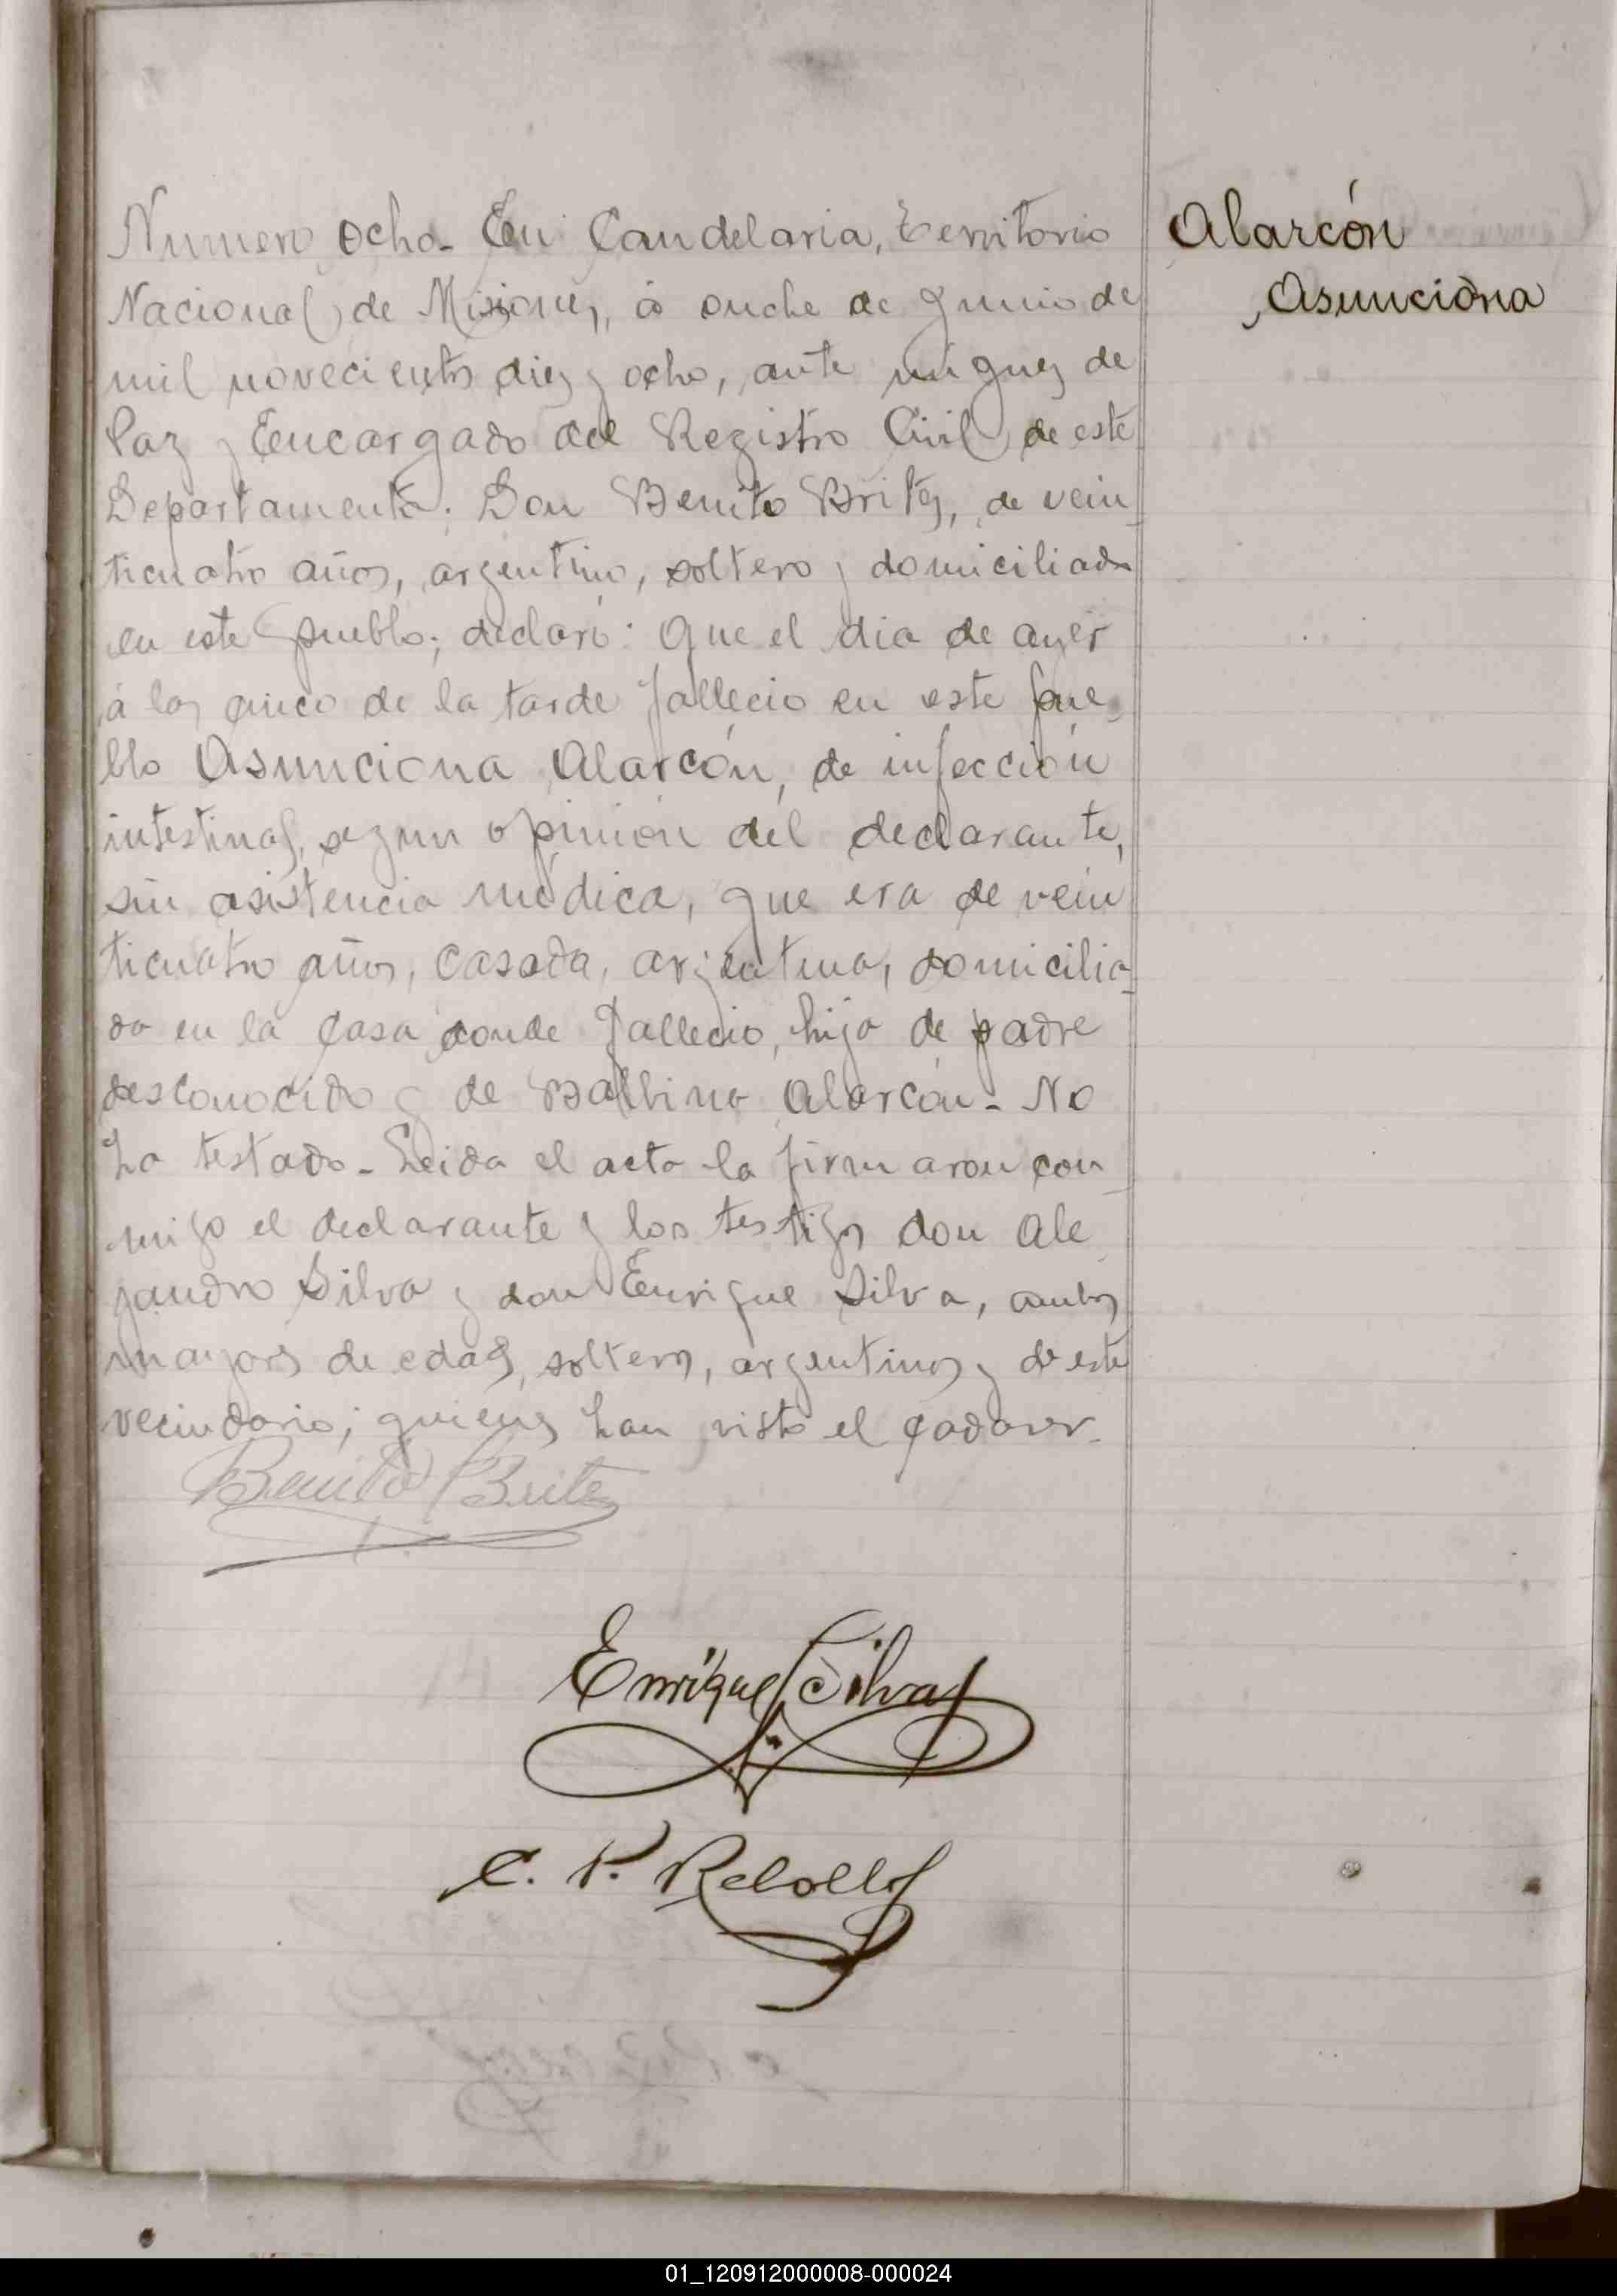 Numero ocho. En Candelaria, Territorio
Nacional de Misiones, á onche de Junio de
mil novecientos diez y ocho, ante mi Juez de
Paz y Encargado del Registro Civil de este
Departamento: Don Benito Britez, de vein
ticuatro años, argentino, soltero y domiciliado
en este pueblo; declaró: Que el dia de ayer
á las cinco de la tarde fallecio en este pue
blo Asunciona Alarcón, de infección
intestinal, segun opinión del declarante,
sin asistencia médica, que era de vein
ticuatro años, casada, argentina, domicilia-
da en la casa donde fallecio, hija de padre
desconocido y de Balbina Alarcón. No
ha testado. Leida el acta la firmaron con
migo el declarante y los testigos don Ale
jandro Silva y don Enrique Silva, ambos
mayores de edad, solteros, argentinos y de este
vecindario; quienes han visto el cadaver.
Benito Britez
Enrique Silva
C. P. Rebollo
Alarcón
Asunciona
01_120912000008-000024